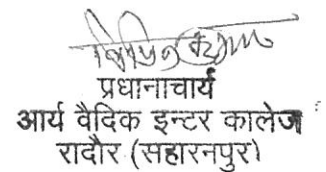 प्रधानाचार्य
आर्य वैदिक इन्टर कालेज
रादौर (सहारनपुर)